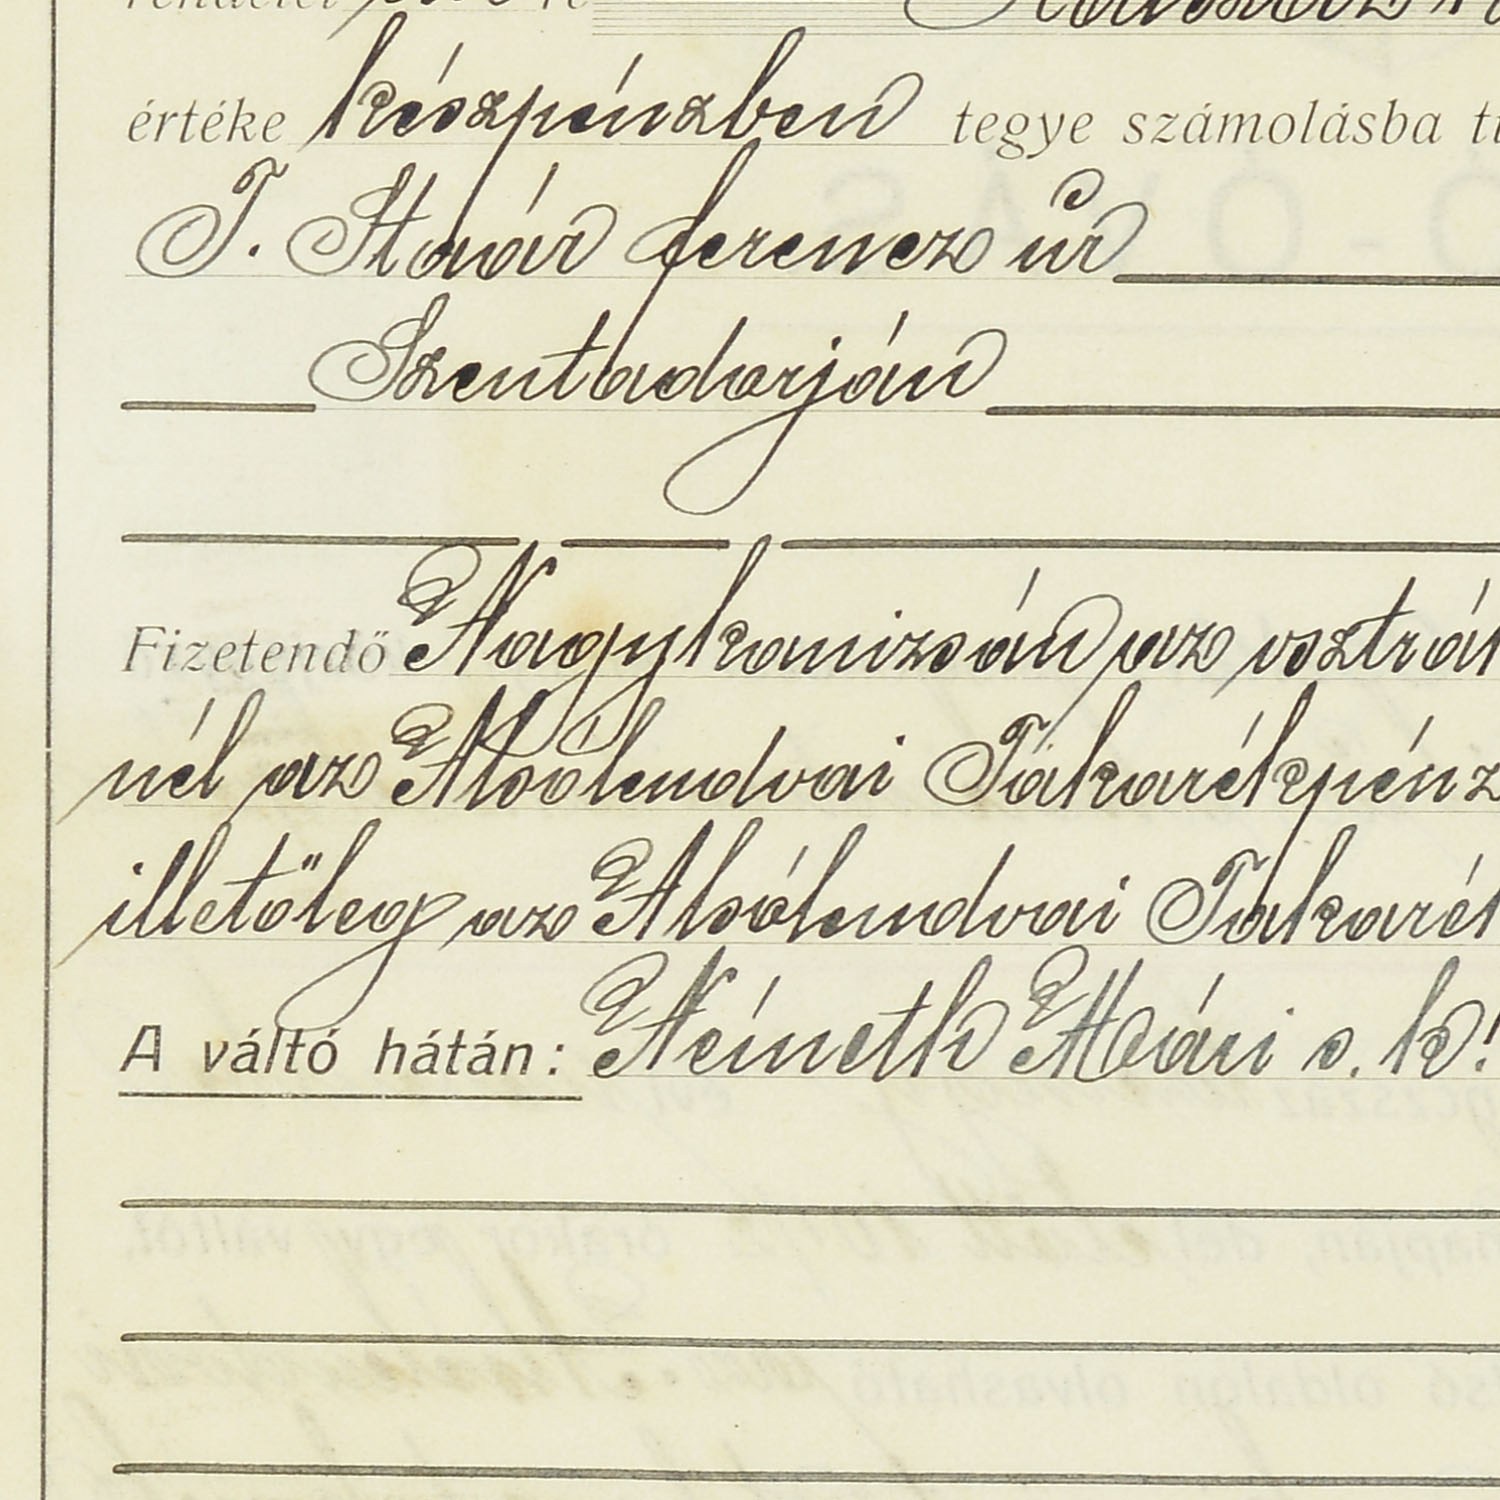 rendelet
értéke készpénzben tegye számolásba
T. Staár ferencz úr
Szentadorján
Fizetendő Nagykanizsán az osztrák
nél az Alsólendvai Takarékpénz
illetőleg az Alsólendvai Takarék
A váltó hátán: Németh Mári s. k!